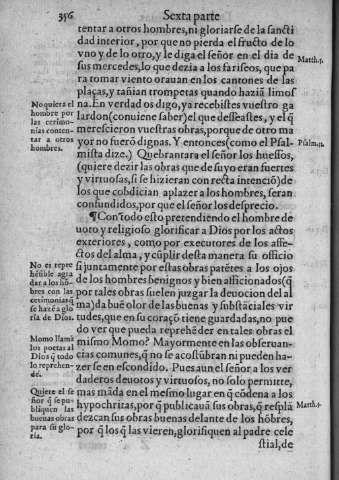 356
Sexta parte
tentar a otros hombres, ni gloriarse de la sancti
dad interior, por que no pierda el fructo de lo
vno y de lo otro, y le diga el señor en el dia de
sus mercedes, lo que dezia a los fariseos, que pa
ra tomar viento orauan en los cantones de las
plaças, y tañian trompetas quando haziã limos
na. En verdad os digo, ya recebistes vuestro ga
lardon (conuiene saber) el que desseastes, y el q̃
merescieron vuestras obras, porque de otro ma
yor no fuerõ dignas. Y entonces (como el Psal
mista dize.) Quebrantara el señor los huessos,
(quiere dezir las obras que de suyo eran fuertes
y virtuosas, si se hizieran con recta intenciõ) de
los que cobdician aplazer a los hombres, seran
confundidos, por que el señor los desprecio.
¶ Con todo esto pretendiendo el hombre de
uoto y religioso glorificar a Dios por los actos
exteriores, como por executores de los affe-
ctos del alma, y cũplir desta manera su officio
si juntamente por estas obras patẽtes a los ojos
de los hombres benignos y bien afficionados (q̃
por tales obras suelen juzgar la deuocion del al
ma) da buẽ olor de las buenas y substãciales vir
tudes, que en su coraçõ tiene guardadas, no pue
do ver que pueda reprehẽder en tales obras el
mismo Momo? Mayormente en las obseruan-
cias comunes, q̃ no se acostũbran ni pueden ha-
zer se en escondido. Pues aun el señor a los ver
daderos deuotos y virtuosos, no solo permitte,
mas mãda en el mesmo lugar en q̃ cõdena a los
hypochritas, por q̃ publicauã sus obras, q̃ resplã
dezcan sus obras buenas delante de los hõbres,
por q̃ los q̃ las vieren, glorifiquen al padre cele
stial, de
Matth.6.
Psalm.52.
Matth.5.
No quiera el
hombre por
las cerimo-
nias conten-
tar a otros
hombres.
No es repre
hẽsible agra
dar a los hõ-
bres con las
cerimonias q̃
se hazẽ a glo
ria de Dios.
Momo llamã
los poetas al
Dios q̃ todo
lo reprehen-
de.
Quiere el se
ñor q̃ se pu-
bliquen las
buenas obras
para su glo-
ria.